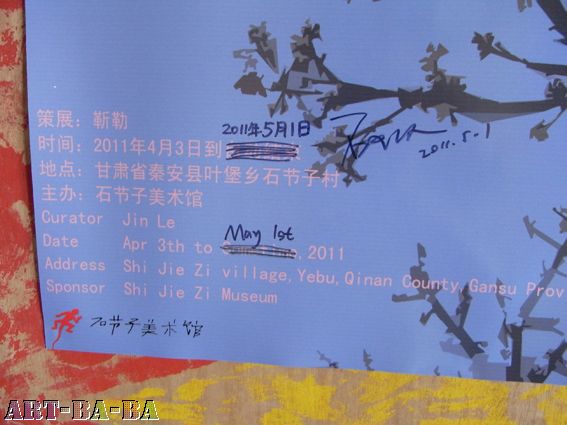 2011年5月1日
策展：靳勒
时间：2011年4月3日到
2011.5.1
地点：甘肃省秦安县叶堡乡石节子村
主办：石节子美术馆
Curator Jin Le
May 1st
Date Apr 3th to ,2011
Address Shi Jie Zi village,Yebu,Qinan County,Gansu Prov
Sponsor Shi Jie Zi Museum
石节子美术馆
ART-BA-BA